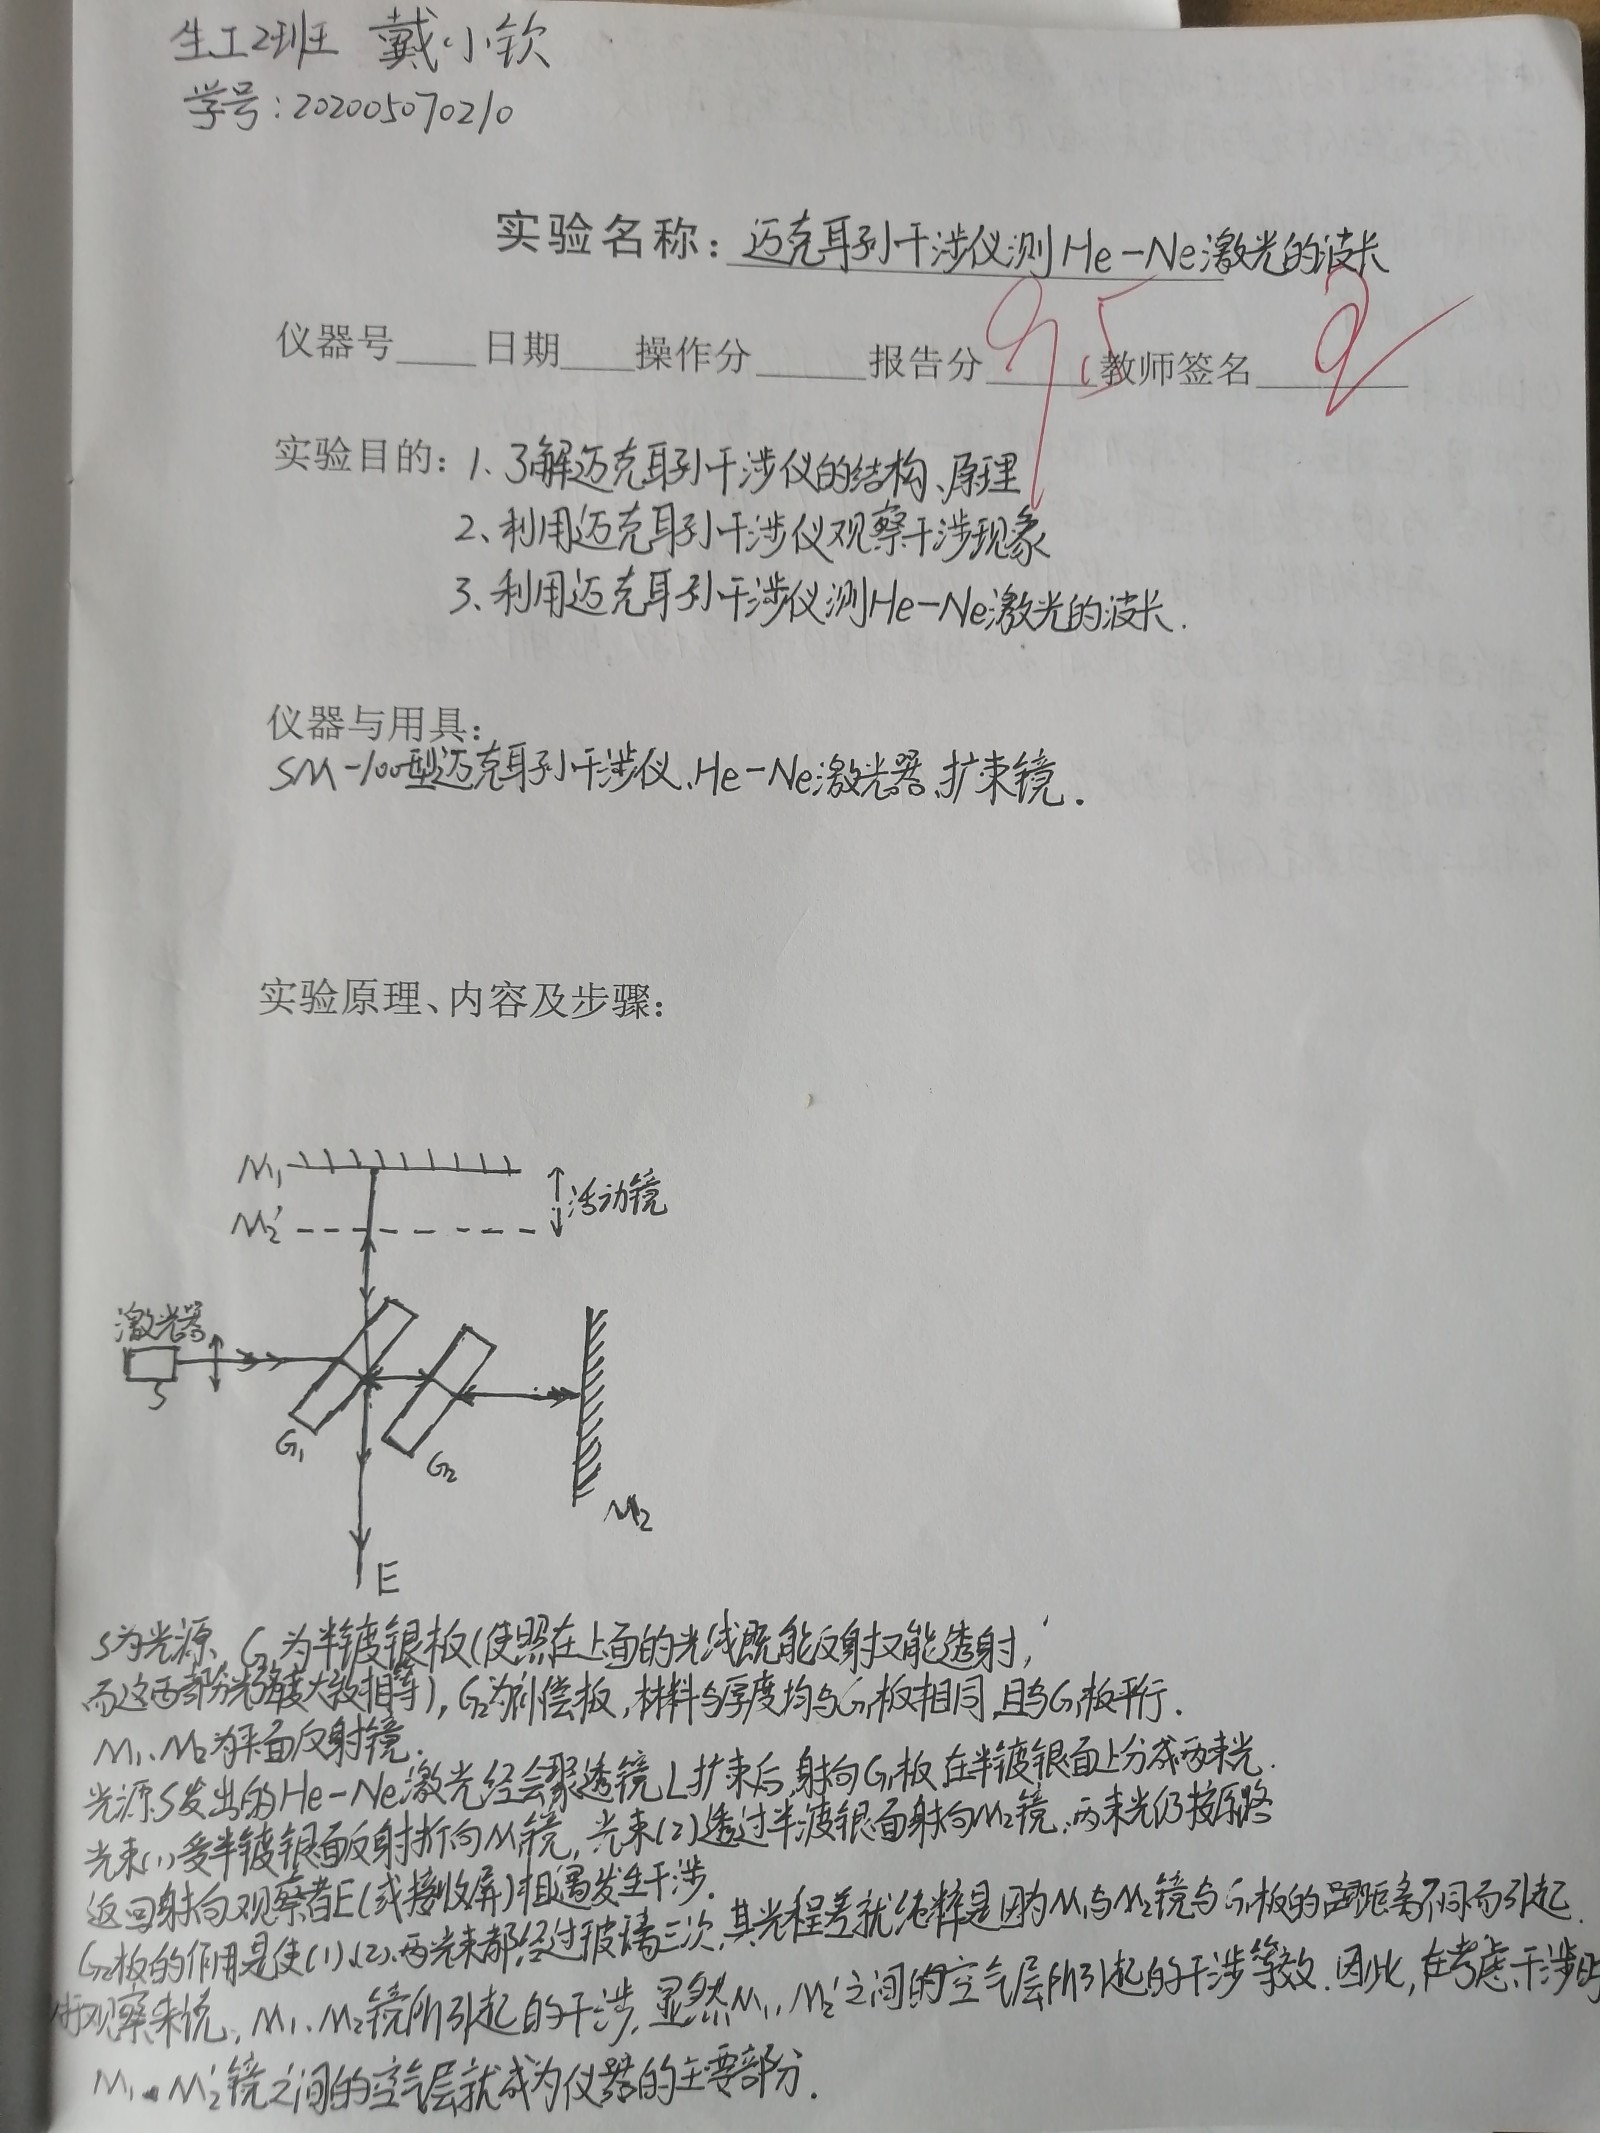 生工2班 戴小钦
学号:202005070210
实验名称:迈克耳孙干涉仪测He-Ne激光的波长
仪器号 日期 操作分 报告分 95 教师签名
实验目的:1、了解迈克耳孙干涉仪的结构、原理
2、利用迈克耳孙干涉仪观察干涉现象
3、利用迈克耳孙干涉仪测He-Ne激光的波长.
仪器与用具:
SM-100型迈克耳孙干涉仪、He-Ne激光器、扩束镜.
实验原理、内容及步骤:
M1
活动镜
M2'
激光器
S
G1
G2
M2
E
S为光源、G1为半镀银板(使照在上面的光线既能反射又能透射,
而这两部分光强度大致相等),G2为补偿板,材料与厚度均与G1板相同,且与G1板平行.
M1、M2为平面反射镜.
光源S发出的He-Ne激光经会聚透镜L扩束后,射向G1板,在半镀银面上分成两束光.
光束(1)受半镀银面反射折向M1镜,光束(2)透过半镀银面射向M2镜,两束光仍按原路
返回射向观察者E(或接收屏)相遇发生干涉.
G2板的作用是使(1)、(2)两光束都经过玻璃三次,其光程差就纯粹是因为M1与M2镜与G1板的距离不同而引起.
观察来说,M1、M2镜所引起的干涉,显然M1、M2'之间的空气层所引起的干涉等效.因此,在考虑干涉时
M1、M2'镜之间的空气层就成为仪器的主要部分.